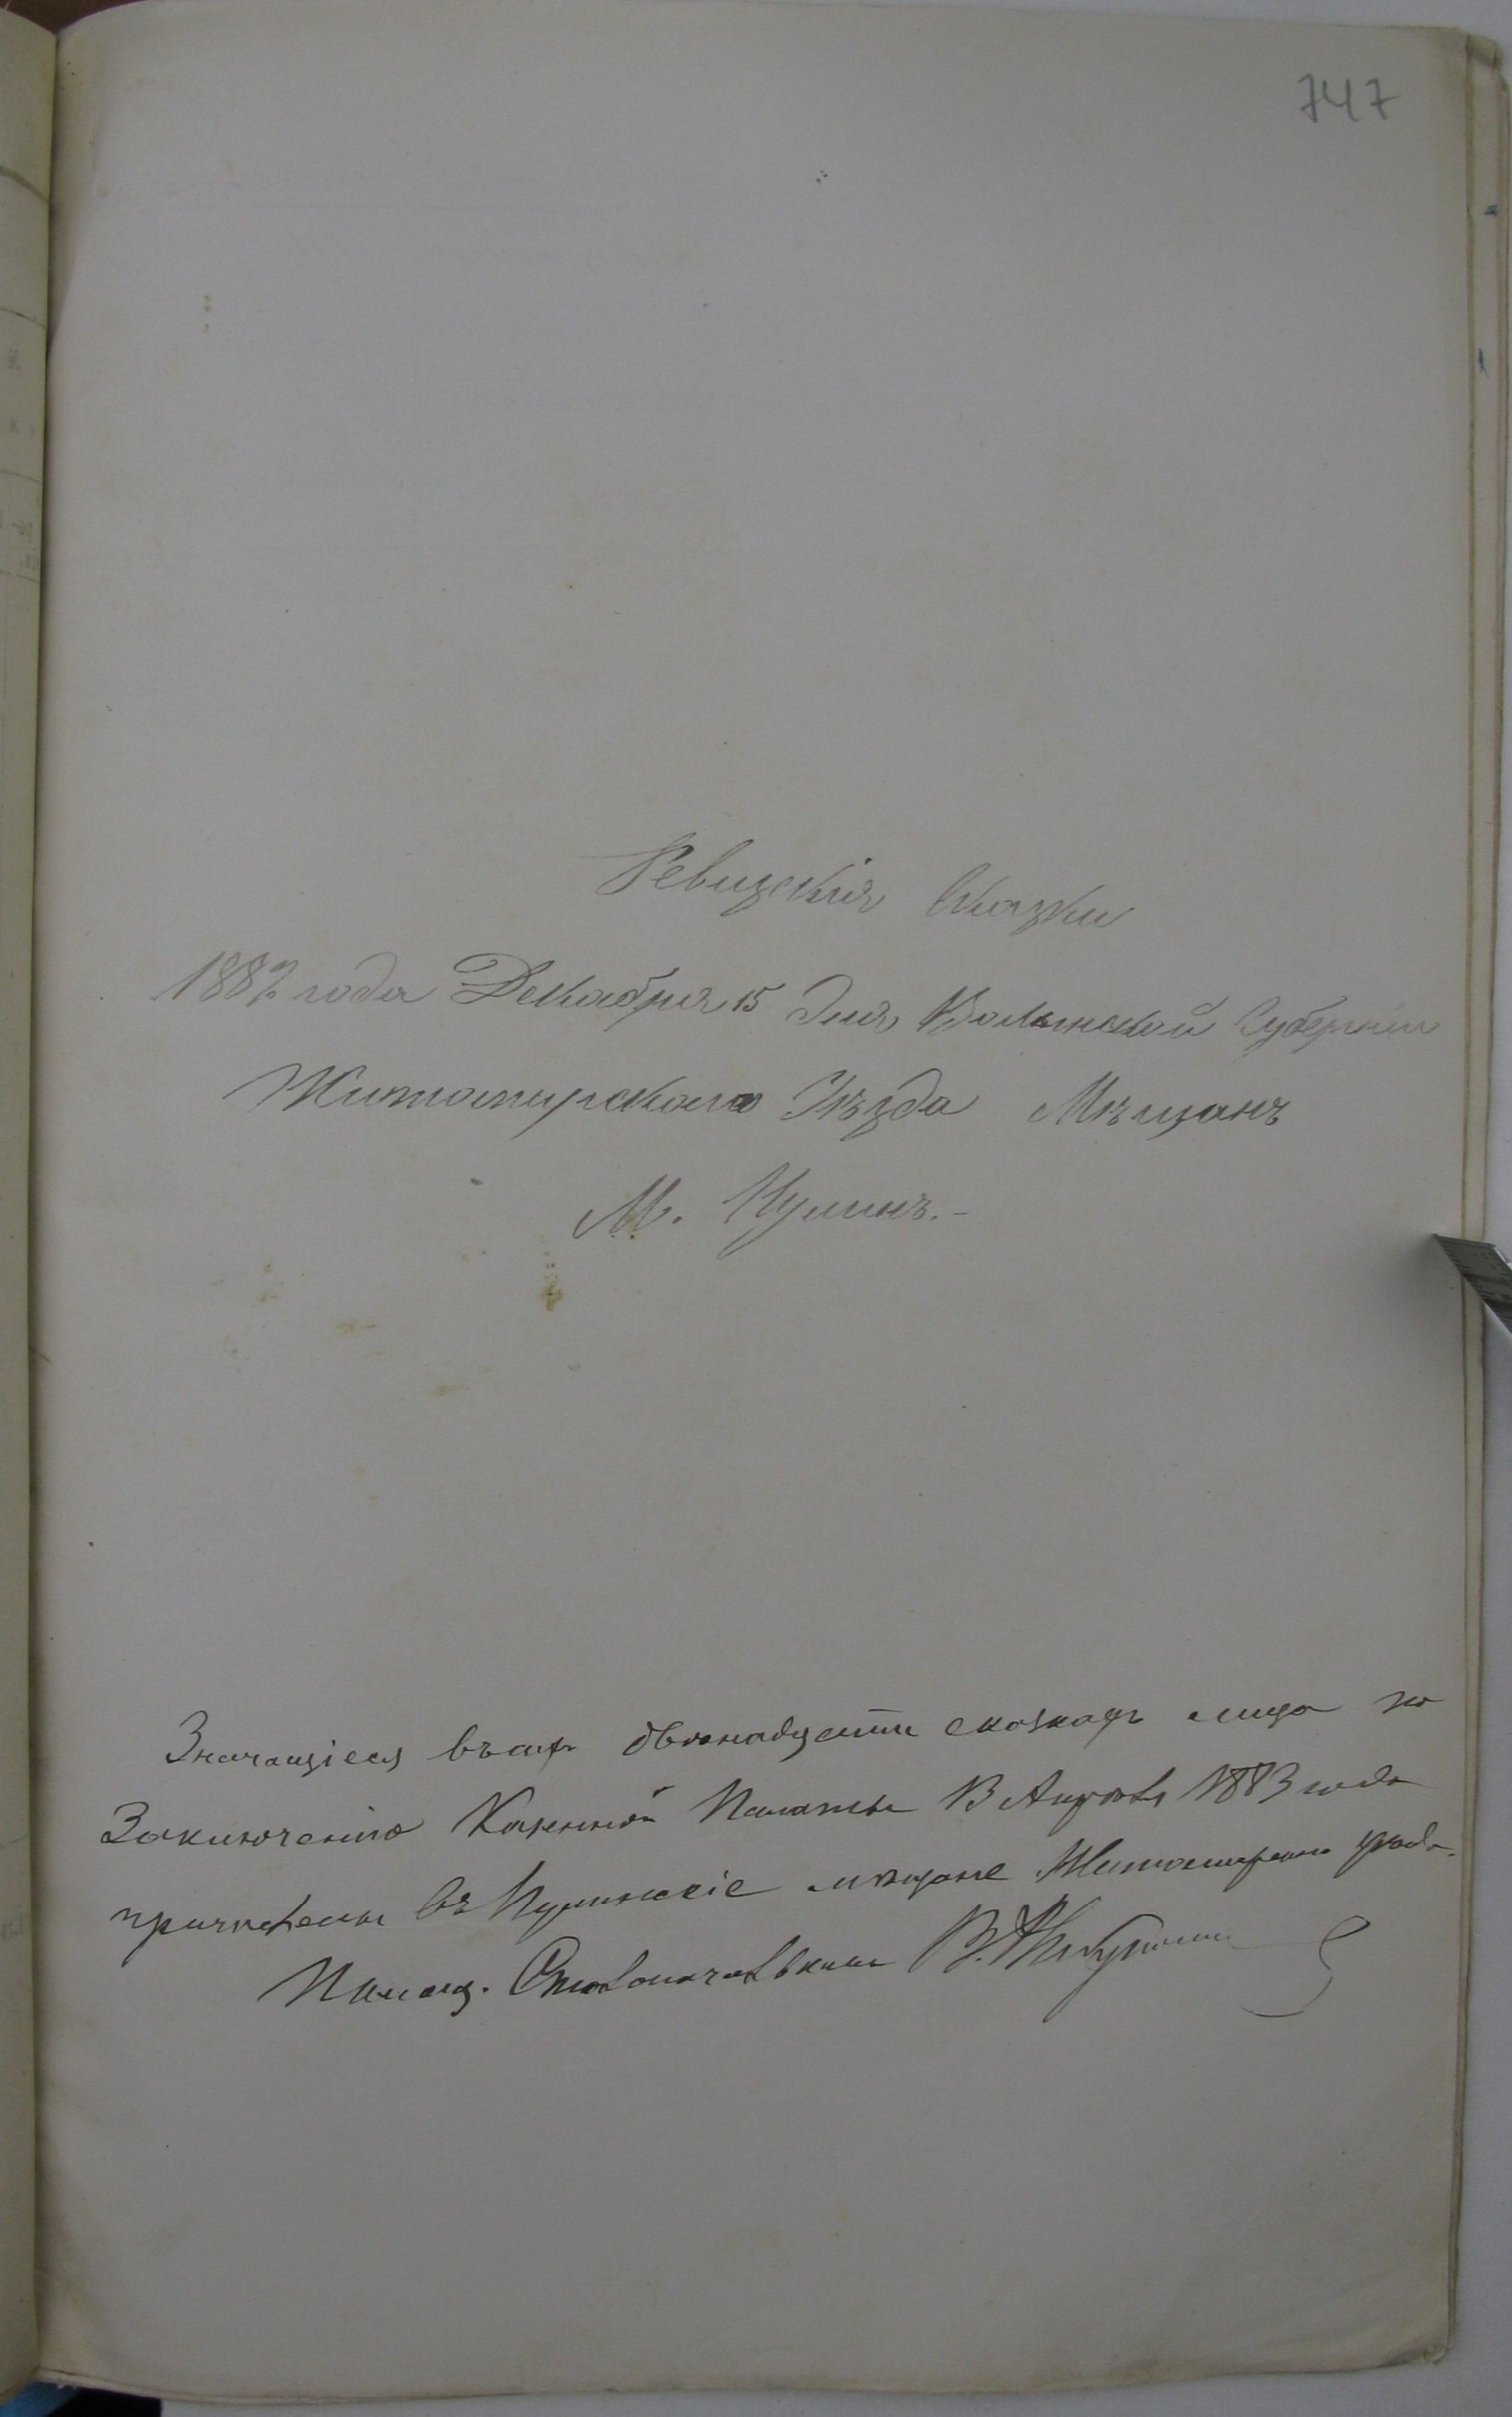 747
Ревизскія Сказки
1882 года Декабря 15 дня Волынской Губерніи
Житомирскаго Уѣзда Мѣщанъ
М. Пулинъ.-
Значащіеся въ двѣнадцати сказкахъ лица по
Заключенію Казенной Палаты 13 Апрѣля 1883 года
причислены въ Пулинскіе мѣщане Житомирскаго уѣзда.
Помощ. Столоначальника В.